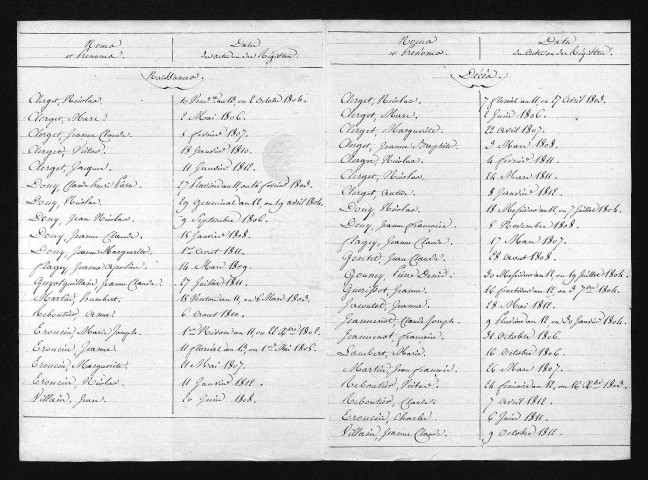 Noms et Prénoms.
Date des actes ou des Registres
Naissances.
Clerget, Nicolas 10 Vend.re an 13, ou 2 Octobre 1804.
Clerget, Marc 2 Mai 1806.
Clerget, Jeanne Claude 5 février 1807.
Clerget, 18 Janvier 1810.
Clerget, Jacques 11 Janvier 1812.
Douy, Claude 27 Pluviose an 11, ou 16 février 1803.
Douy, Nicolas 29 Germinal an 12, ou 19 avril 1804.
Douy, Jean Nicolas 9 Septembre 1806.
Douy, Jeanne Claude 15 Janvier 1808.
Douy, Jeanne Marguerite 1er Aout 1811.
flagey, Jeanne Apoline 14 Mars 1809.
Guyotguillain, Jeanne Claude 27 Juillet 1811.
Martin, humbert 15 Ventose an 11, ou 6 Mars 1803.
Reboutier, 6 Aout 1810.
Erouein, Marie Joseph 1er Nivose an 11, ou 22 Xbre 1802.
Erouein, Jeanne 11 floréal an 13, ou 1er Mai 1805.
Erouein, Marguerite 11 Mai 1807.
Erouein, Nicolas 11 Janvier 1812.
Villain, Jean 20 Juin 1808.
Noms et Prénoms
Date des actes ou des Registres
Décès.
Clerget, Nicolas 7 floréal an 11, ou 27 Avril 1803.
Clerget, Marc 2 Juin 1806.
Clerget, Marguerite 22 Avril 1807.
Clerget, Jeanne 3 Mars 1808.
Clerget, Nicolas 4 février 1811.
Clerget, Nicolas 24 Mars 1811.
Clerget, 8 Janvier 1812.
Douy, Nicolas 18 Messidor an 12, ou 7 Juillet 1804.
Douy, Jeanne françoise 5 Novembre 1808.
flagey, Jeanne Claude 17 Mars 1807.
Gentet, Jean Claude 28 Aout 1808.
Gouney, Pierre Désiré 30 Messidor an 12, ou 19 Juillet 1804.
Jeanne 16 fructidor an 12, ou 3 7bre 1804.
Jeanne 28 Mai 1812.
Jeannenot, Claude Joseph 9 Pluviose an 12, ou 30 Janvier 1804.
Jeannenot, françoise 31 Octobre 1806.
Lambert, Marie 16 Octobre 1806.
Martin, Jean francois 26 Mars 1807.
Reboutier, 24 frimaire an 12, ou 16 Xbre 1803.
Reboutier, Claude 7 Avril 1812.
Erouein, Charles 6 Juin 1811.
Villain, Jeanne Claude 9 Octobre 1812.